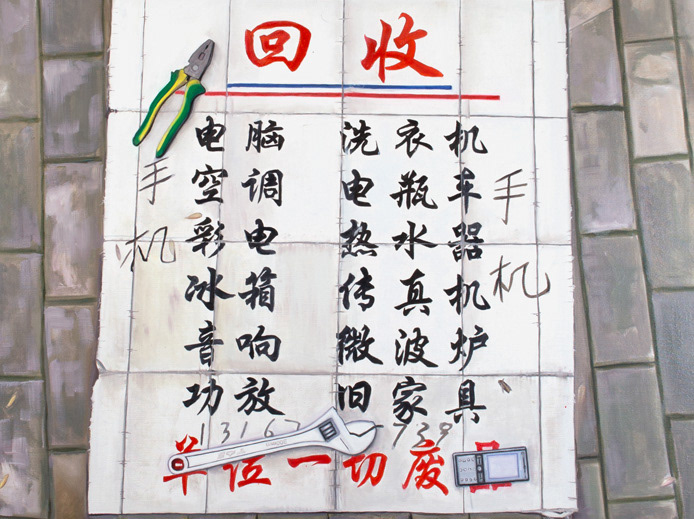 回收
电脑 洗衣机
空调 电瓶车
彩电 热水器
冰箱 传真机
音响 微波炉
功放 旧家具
手机
手机
13167 739
单位一切废品